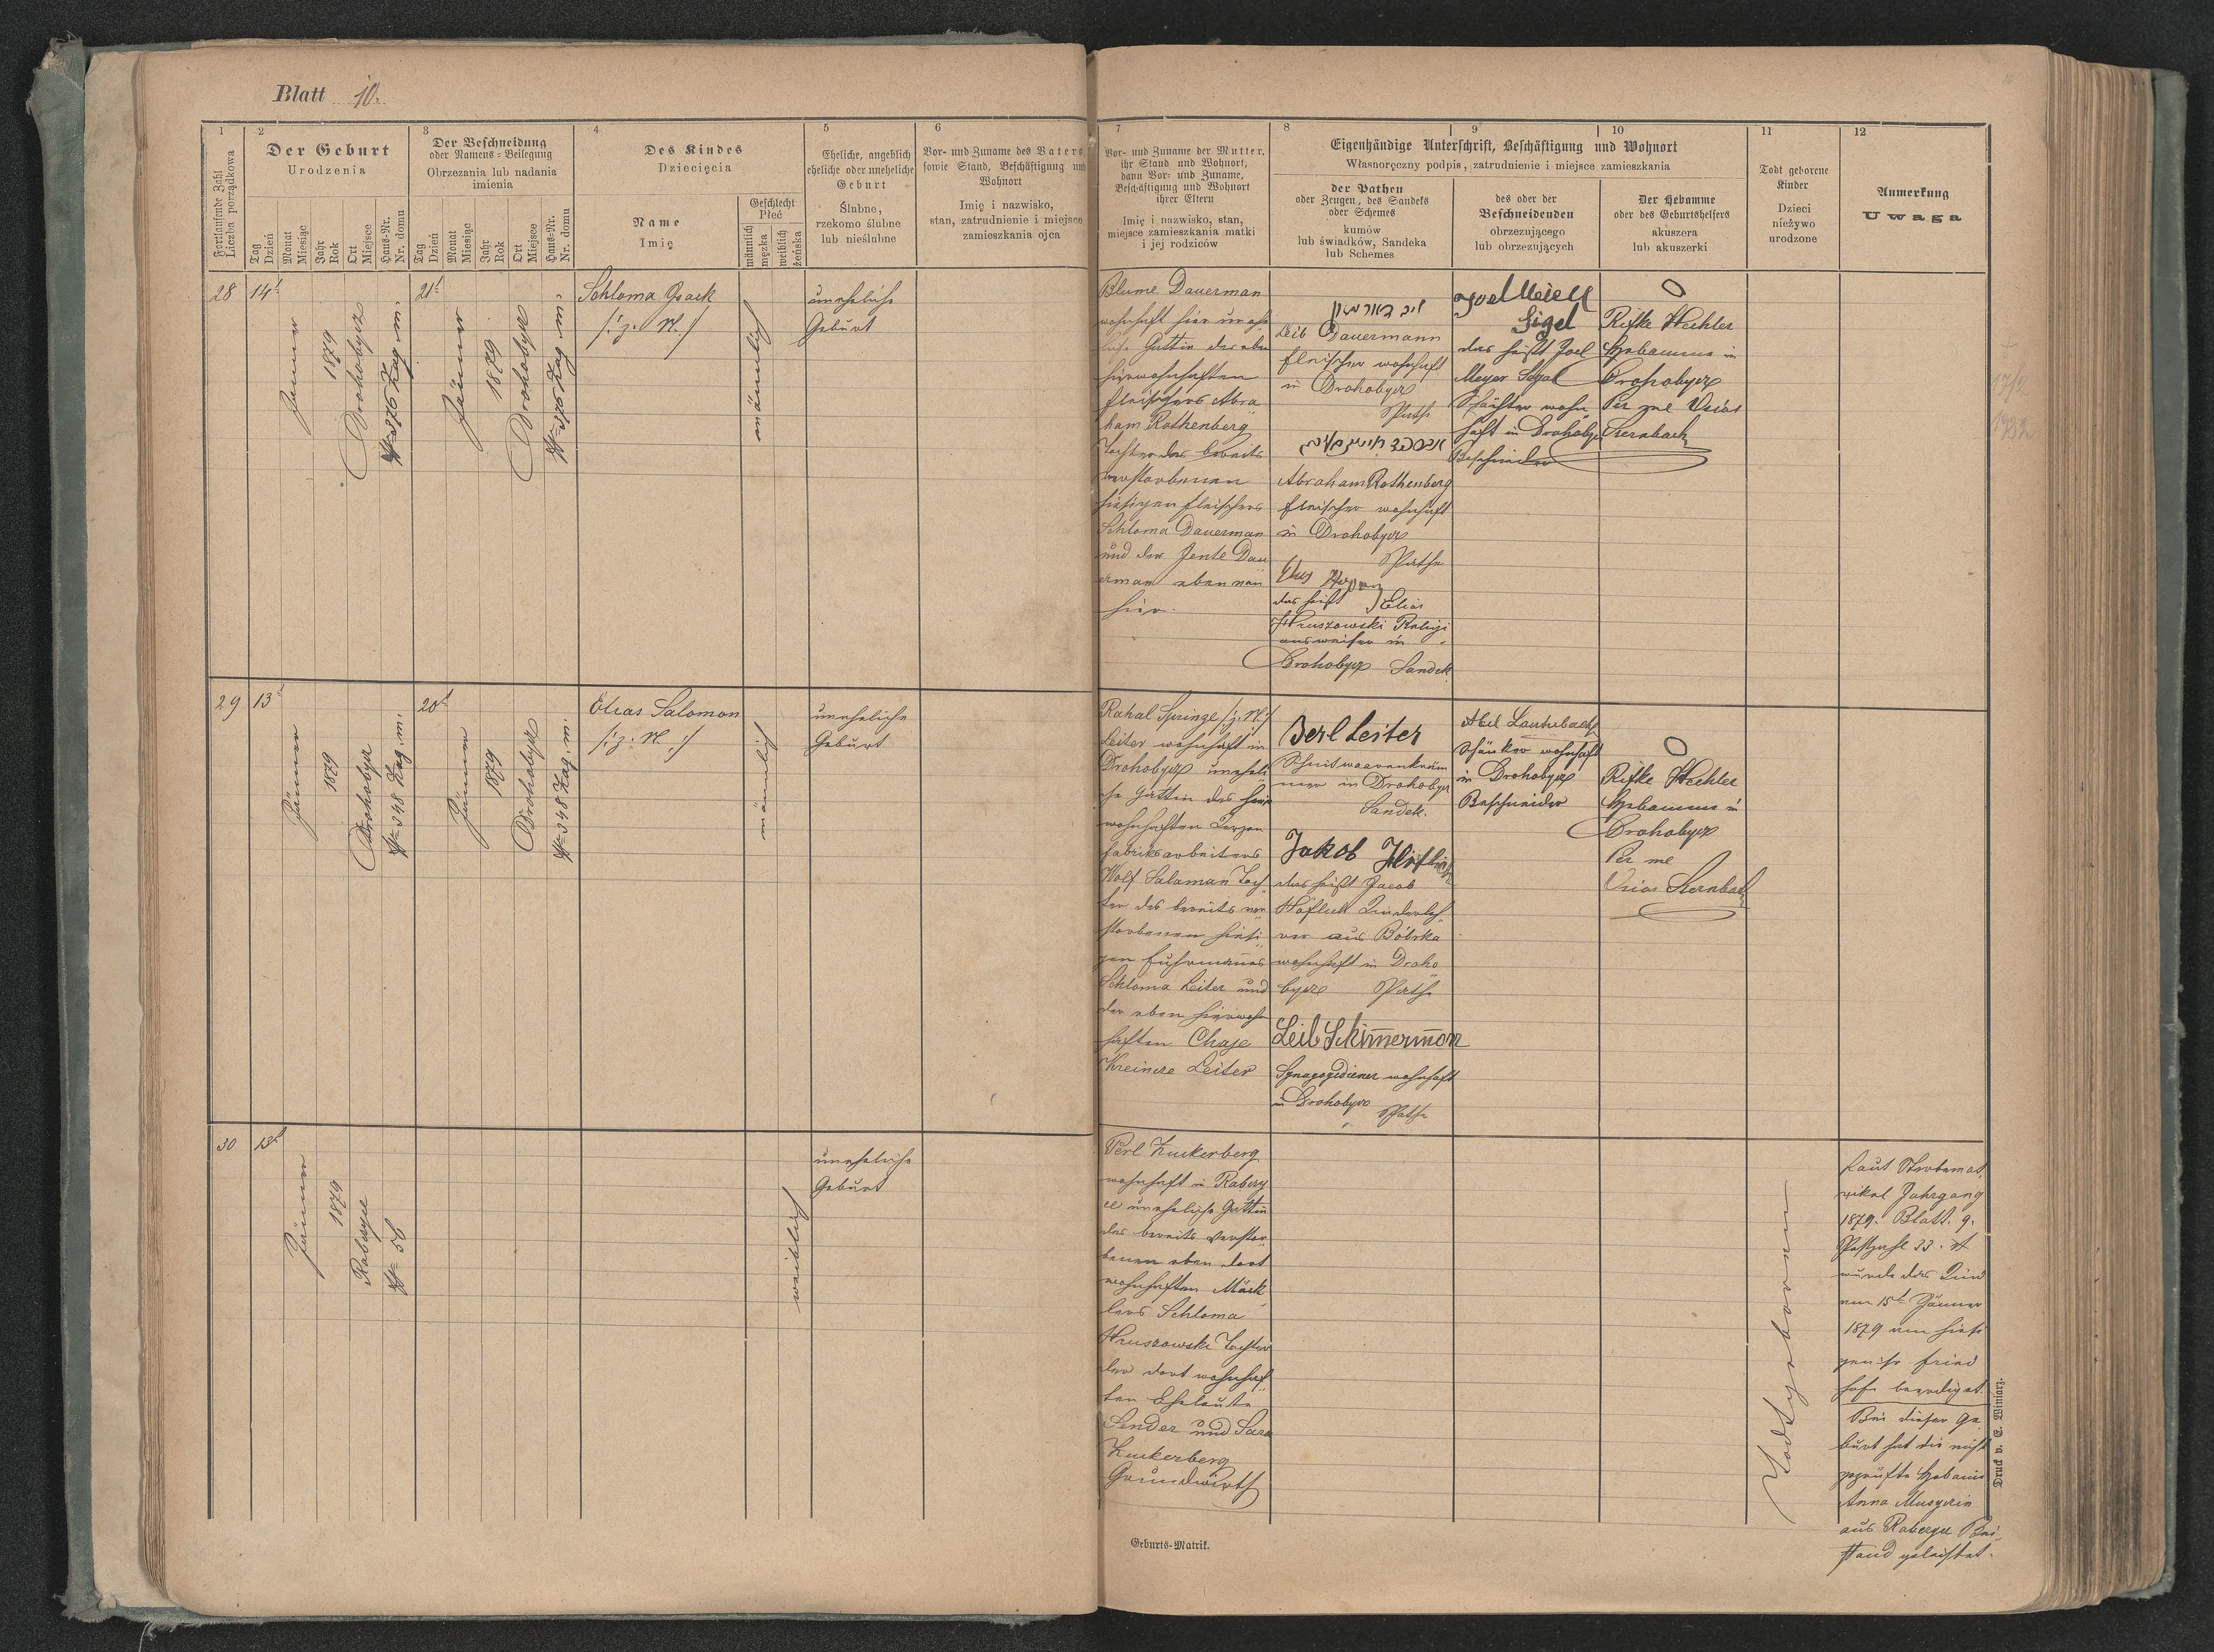 Blatt 10.
1
Fortlaufende Zahl
Liczba porządkowa
2
Der Geburt
Urodzenia
Tag
Dzień
Monat
Miesiąc
Jahr
Rok
Ort
Miejsce
Haus-Nr.
Nr. domu
3
Der Beschneidung
oder Namens-Beilegung
Obrzezania lub nadania
imienia
Tag
Dzień
Monat
Miesiąc
Jahr
Rok
Ort
Miejsce
Haus-Nr.
Nr. domu
4
Des Kindes
Dziecięcia
Name
Imię
Geschlecht
Płeć
männlich
męzka
weiblich
żeńska
5
Eheliche, angeblich
eheliche oder uneheliche
Geburt
Ślubne,
rzekomo ślubne
lub nieślubne
6
Vor- und Zuname des Vaters,
sowie Stand, Beschäftigung und
Wohnort
Imię i nazwisko,
stan, zatrudnienie i miejsce
zamieszkania ojca
7
Vor- und Zuname der Mutter,
ihr Stand und Wohnort,
dann Vor- und Zuname,
Beschäftigung und Wohnort
ihrer Eltern
Imię i nazwisko, stan,
miejsce zamieszkania matki
i jej rodziców
8
9
10
Eigenhändige Unterschrift, Beschäftigung und Wohnort
Własnoręczny podpis, zatrudnienie i miejsce zamieszkania
der Pathen
oder Zeugen, des Sandeks
oder Schemes
kumów
lub świadków, Sandeka
lub Schemes
des oder der
Beschneidenden
obrzezującego
lub obrzezujących
Der Hebamme
oder des Geburtshelfers
akuszera
lub akuszerki
11
Todt geborene
Kinder
Dzieci
nieżywo
urodzone
12
Anmerkung
Uwaga
28
14t
Jänner
1879
Drohobycz
No 376 Zag. m.
21t
Jänner
1879
Drohobycz
No 376 Zag. m.
Schloma Isack
/: z. N. :/
männlich
uneheliche
Geburt
Blume Dauerman
wohnhaft hier unehe
liche Gattin des eben
hierwohnhaften
Fleischers Abra
ham Rothenberg
Tochter des bereits
verstorbenen
hiesigen Fleischers
Schloma Dauerman
und der Jente Dau
erman ebenvon
hier.
Leib Dauermann
Fleischer wohnhaft
in Drohobycz
Pathe
Abraham Rothenberg
Fleischer wohnhaft
in Drohobycz
Pathe
das heißt Elias
Hruszowski Religi
onsweiser in
Drohobycz Sandek
Joel Meier
Sigel
das heißt Joel
Meyer Segal
Schächter wohn
haft in Drohobycz
Beschneider
O
Rifke Wechler
Hebamme in
Drohobycz
Per me Osias
Sternbach
29
13t
Jänner
1879
Drohobycz
No 348 Zag. m.
20t
Jänner
1879
Drohobycz
No 348 Zag. m.
Elias Salomon
/: z. N. :/
männlich
uneheliche
Geburt
Rahal Springe /: z. N. :/
Leiter wohnhaft in
Drohobycz uneheli
che Gattin des hier
wohnhaften Kerzen
fabriksarbeiters
Wolf Salaman Toch
ter des bereits ver
storbenen hiesi
gen Fuhrmannes
Schloma Leiter und
der eben hierwohn
haften Chaje
Kreincze Leiter
Berl Leiter
Schnittwaarenkräm
mer in Drohobycz
Sandek.
Jakob Höflich
das heißt Jacob
Höflich Kinderleh
rer aus Bóbrka
wohnhaft in Droho
bycz Pathe
Leib Schimermon
Synagogediener wohnhaft
in Drohobycz Pathe
Abel Lauterbach
Schänker wohnhaft
in Drohobycz
Beschneider
O
Rifke Wechler
Hebamme in
Drohobycz
Per me
Osias Sternbach
30
13t
Jänner
1879
Rabczyce
No 56
weiblich
uneheliche
Geburt
Perl Zuckerberg
wohnhaft in Rabczy
ce uneheliche Gattin
des bereits verstor
benen eben dort
wohnhaften Mäck
lers Schloma
Hruszowski Tochter
der dort wohnhaf
ten Eheleute
Sender und Sara
Zuckerberg
Grundwirth
Todtgeboren
Laut Sterbemat
rikel Jahrgang
1879. Blatt. 9.
Postzahl 33.
wurde das Kind
am 15t Jänner
1879 am hiesi
gen isr Fried
hofe beerdigt.
Bei dieser Ge
burt hat die nicht
geprüfte Hebamme
Anna
aus Rabczyce Bei
stand geleistet.
Geburts-Matrik.
Druck v. E. Winiarz.